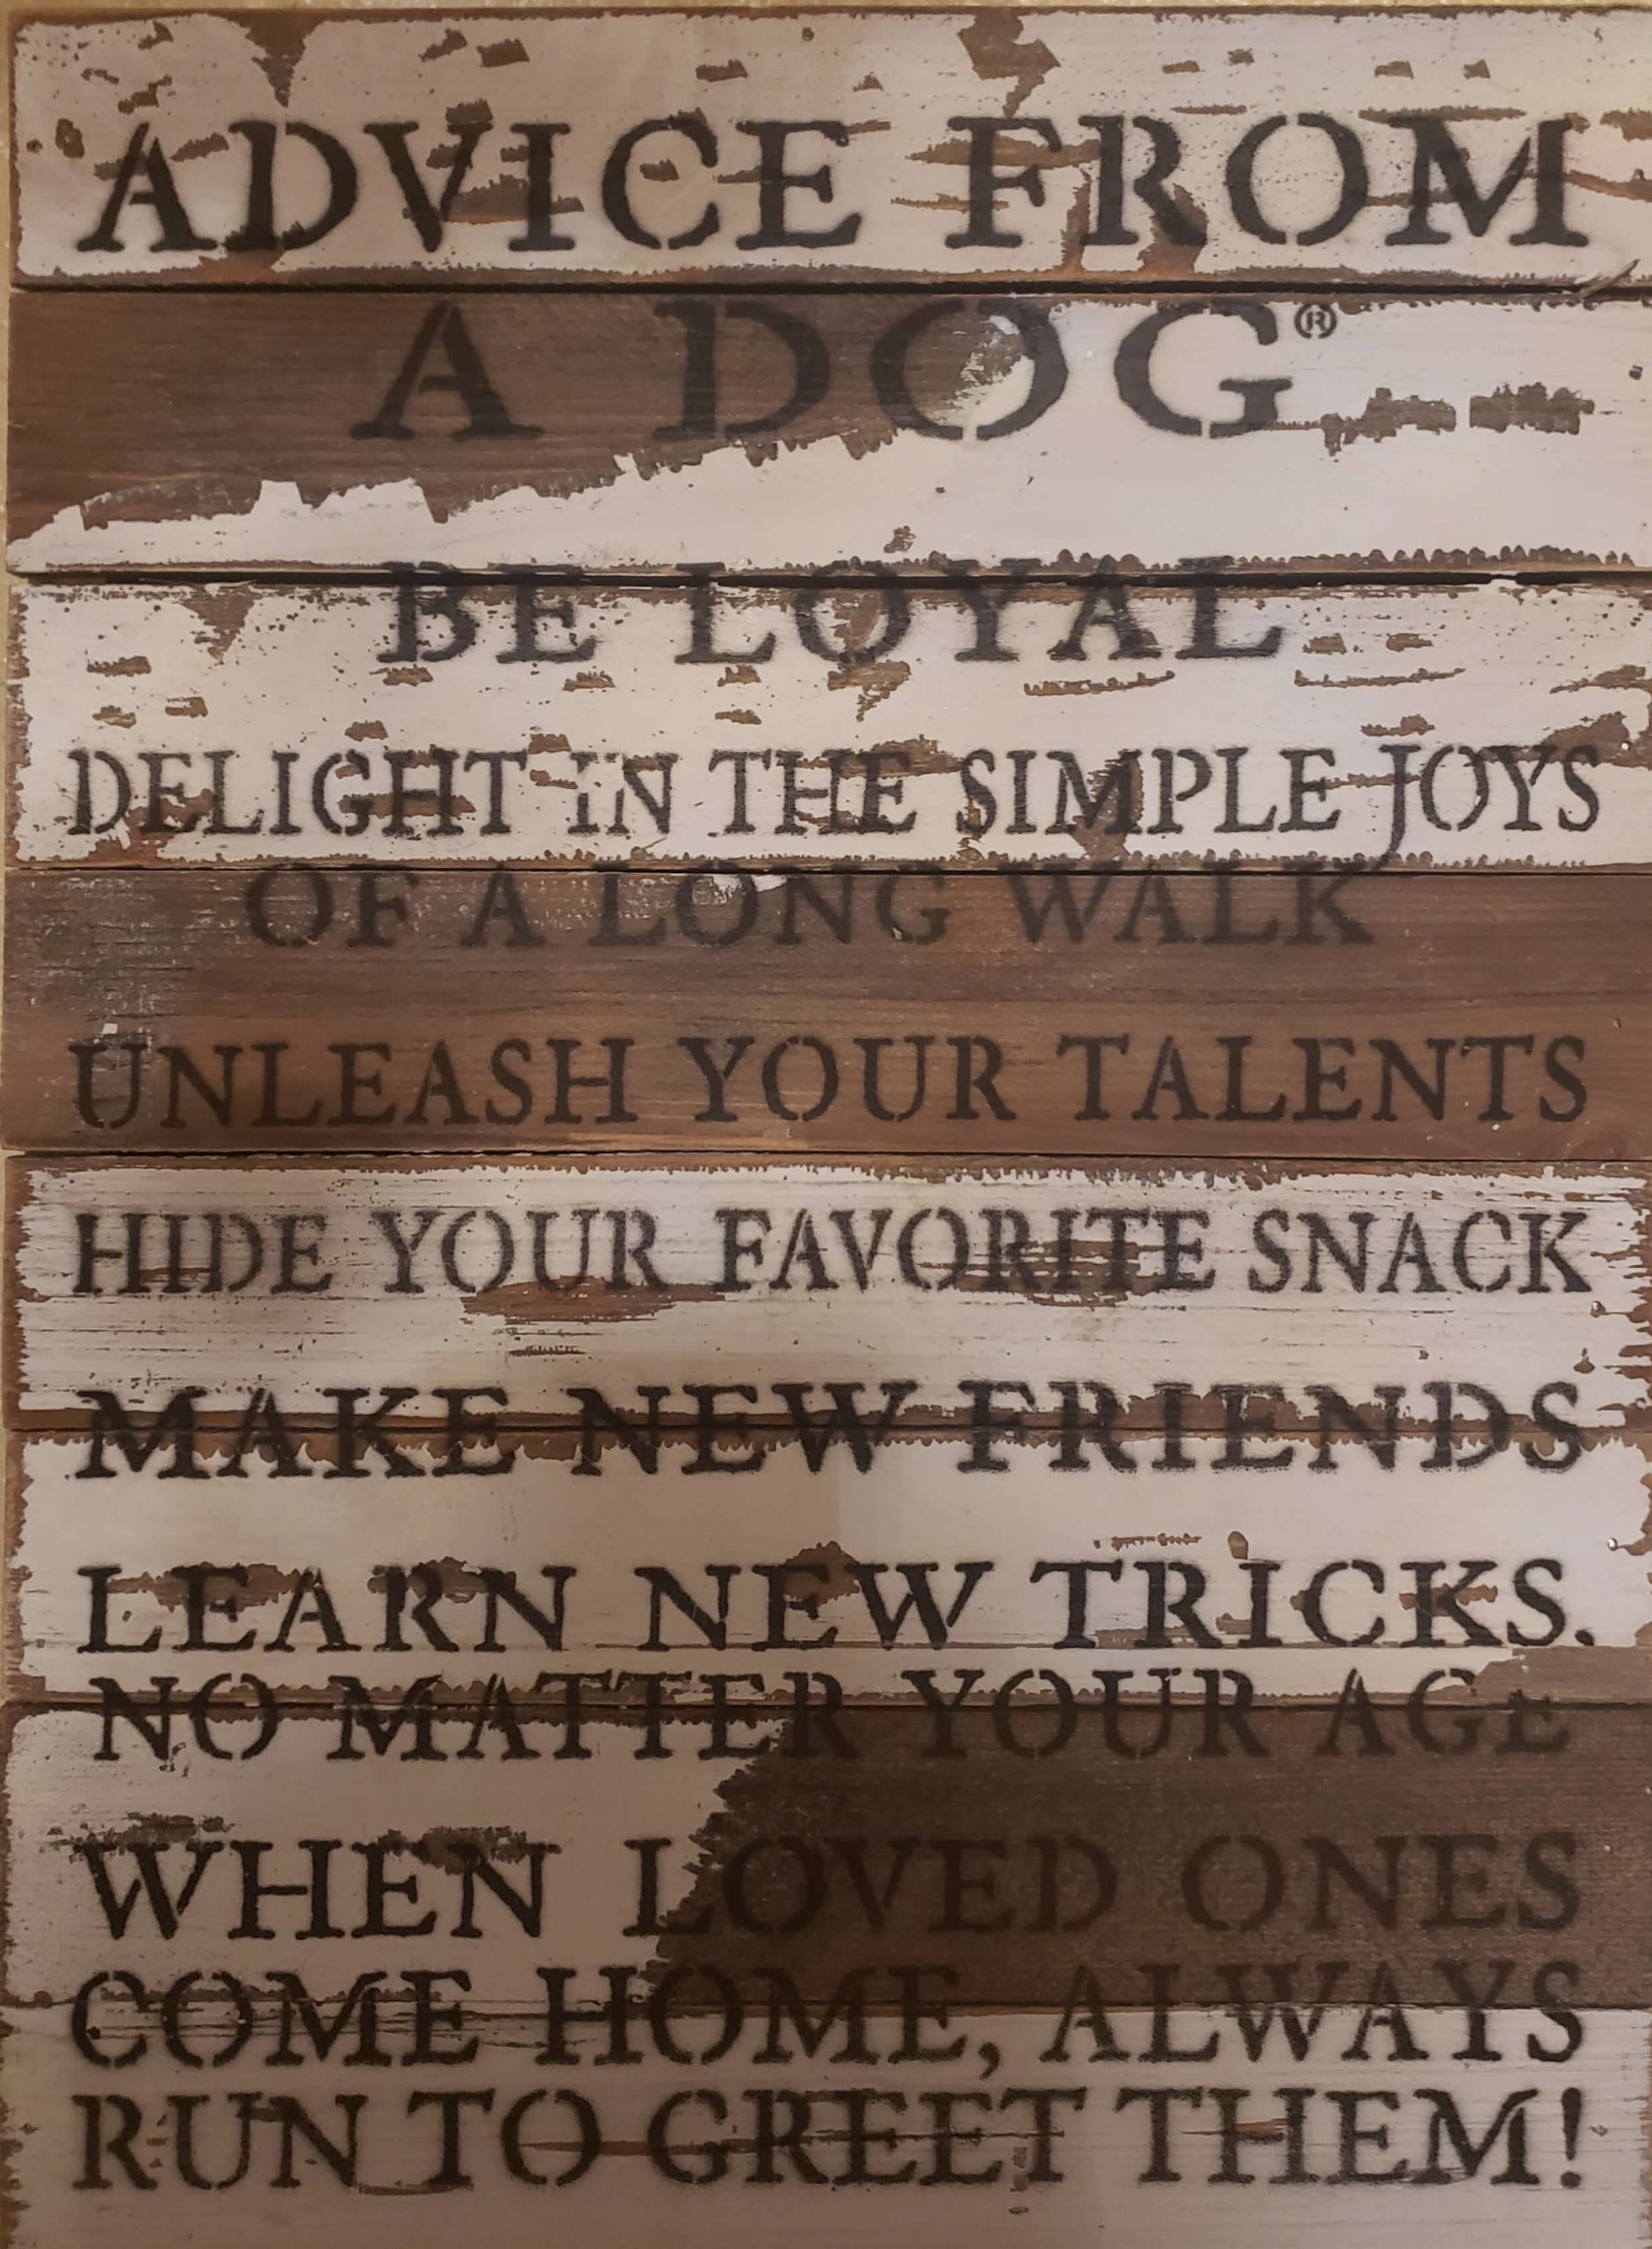 ADVICE FROM
A DOG®
BE LOYAL
DELIGHT IN THE SIMPLE JOYS
OF A LONG WALK
UNLEASH YOUR TALENTS
HIDE YOUR FAVORITE SNACK
MAKE NEW FRIENDS
LEARN NEW TRICKS.
NO MATTER YOUR AGE
WHEN LOVED ONES
COME HOME, ALWAYS
RUN TO GREET THEM!